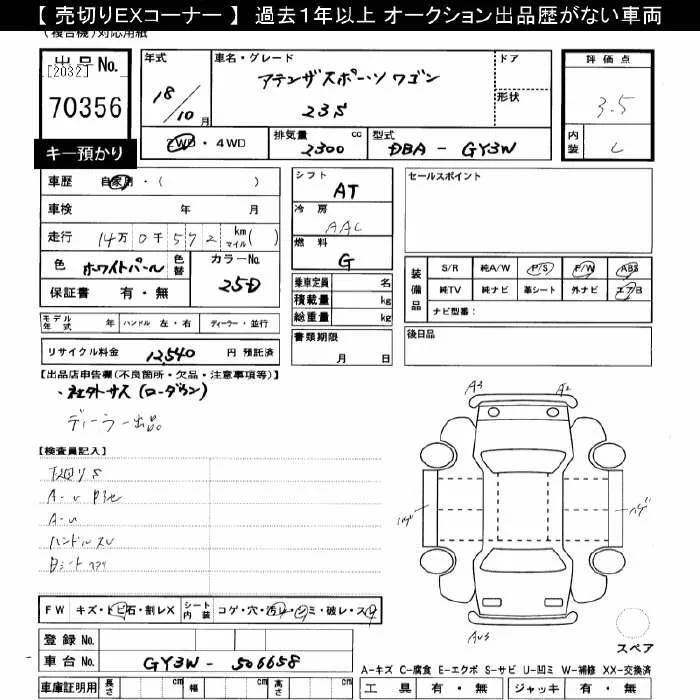 【 売切りEXコーナー 】 過去１年以上 オークション出品歴がない車両
(複合機)対応用紙
出品No.
[2032]
70356
キー預かり
年式
18/10月
車名・グレード
アテンザスポーツワゴン
23S
ドア
形状
評価点
3.5
内装
C
2WD・4WD
排気量 cc
2300
型式
DBA - GY3W
車歴 自家用・( )
車検 年 月
走行 14万0千572 km マイル( )
色 ホワイトパール
色替
カラーNo.
25D
保証書 有・無
シフト
AT
冷房
AAC
燃料
G
乗車定員 名
積載量 kg
総重量 kg
書類期限
月 日
セールスポイント
装備品
S/R 純A/W P/S P/W ABS
純TV 純ナビ 革シート 外ナビ エアB
ナビ型番:
後日品
モデル年式 年 ハンドル 左・右 ディーラー・並行
リサイクル料金 12,540 円 預託済
【出品店申告欄(不良箇所・欠品・注意事項等)】
・社外サス(ローダウン)
ディーラー出品
【検査員記入】
下廻りS
A-U
ハンドルスレ
A3
A2
ハゲ
ハゲ
FW キズ・トビ石・割レX シート内装 コゲ・穴・汚レ・シミ・破レ・スレ
登録No.
車台No. GY3W - 506658
車庫証明用 長さ cm 幅 cm 高さ cm
スペア
A-キズ C-腐食 E-エクボ S-サビ U-凹ミ W-補修 XX-交換済
工具 有・無 ジャッキ 有・無